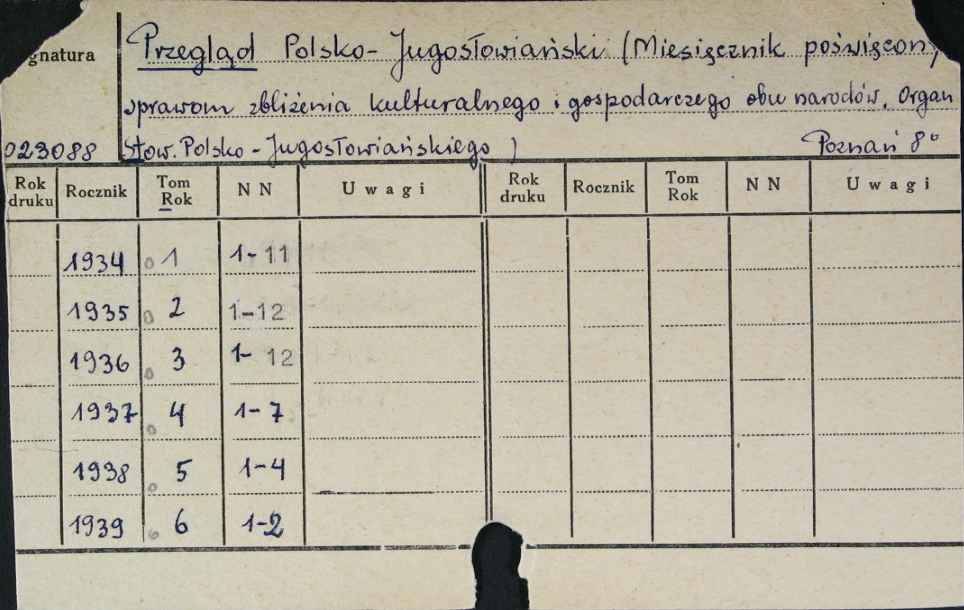 gnatura
Przegląd Polsko-Jugosłowiański (Miesięcznik poświęcony
sprawom zbliżenia kulturalnego i gospodarczego obu narodów. Organ
023088 Stow. Polsko-Jugosłowiańskiego) Poznań 8°
Rok druku Rocznik Tom Rok NN Uwagi Rok druku Rocznik Tom Rok NN Uwagi
1934 1 1-11
1935 2 1-12
1936 3 1-12
1937 4 1-7
1938 5 1-4
1939 6 1-2